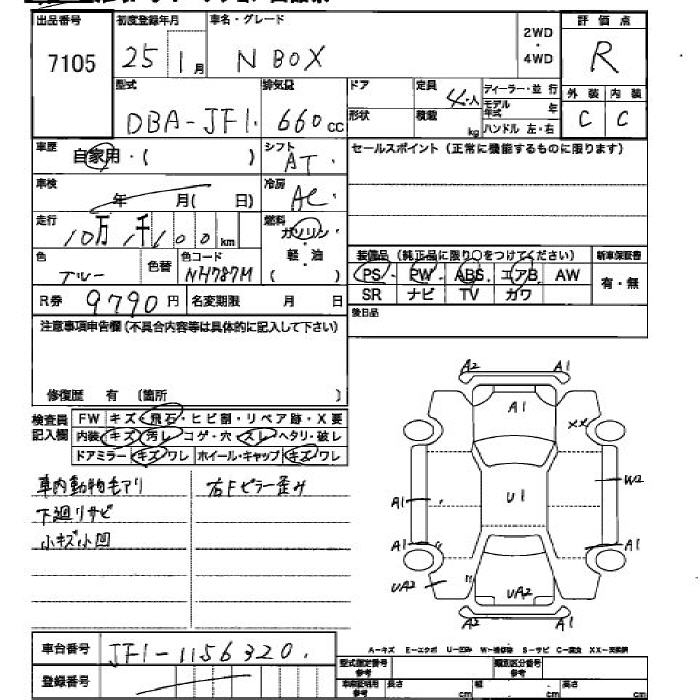 出品番号 初度登録年月 車名・グレード 評価点
7105 25 1月 N BOX 2WD・4WD R
型式 排気量 ドア 定員 ディーラー・並行 外装 内装
DBA-JF1. 660cc 形状 積載 kg 4人 モデル年式 年 C C
ハンドル 左・右
車歴 自家用・( ) シフト AT セールスポイント(正常に機能するものに限ります)
車検 年 月( 日) 冷房 AC
走行 10万1千100km 燃料 ガソリン・軽・油 ( )
装備品(純正品に限り○をつけてください) 新車保証書
色 ブルー 色替 色コード NH787M PS PW ABS エアB AW 有・無
SR ナビ TV カワ
R券 9790円 名変期限 月 日 後日品
注意事項申告欄(不具合内容等は具体的に記入して下さい)
修復歴 有 〔箇所 〕
検査員記入欄 FW キズ・飛石・ヒビ割・リペア跡・X要
内装 キズ 汚レ コゲ・穴 スレ ヘタリ・破レ
ドアミラー キズ ワレ ホイール・キャップ キズ ワレ
車内動物毛アリ 右Fピラー歪み
下廻りサビ
小キズ小凹
A2 A1
A1
XX
W2
A1 U1
A1 A1
UA2 UA2
A2 A1
車台番号 JF1-1156320.
A-キズ E-エクボ U-凹み W-補修跡 S-サビ C-腐食 XX-交換済
登録番号 型式指定番号 参考 類別区分番号 参考
車庫証明用 参考 長さ cm 幅 cm 高さ cm